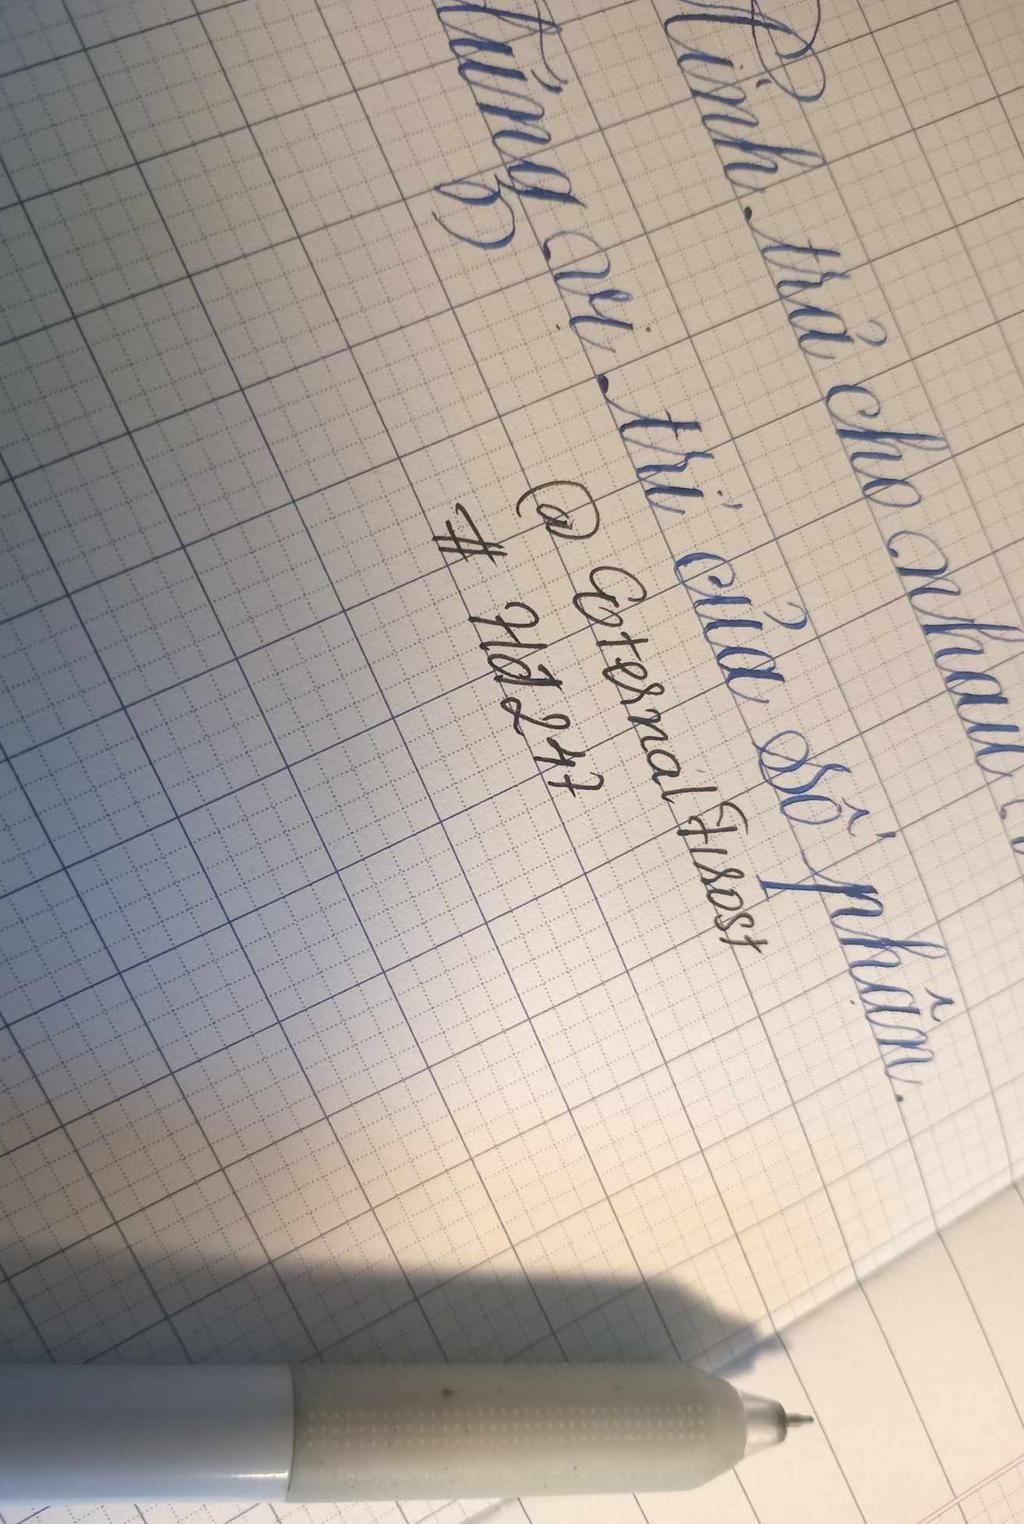 Mình trả cho nhau
đúng vị trí của số phận.
@ EternalFrost
# Hd247